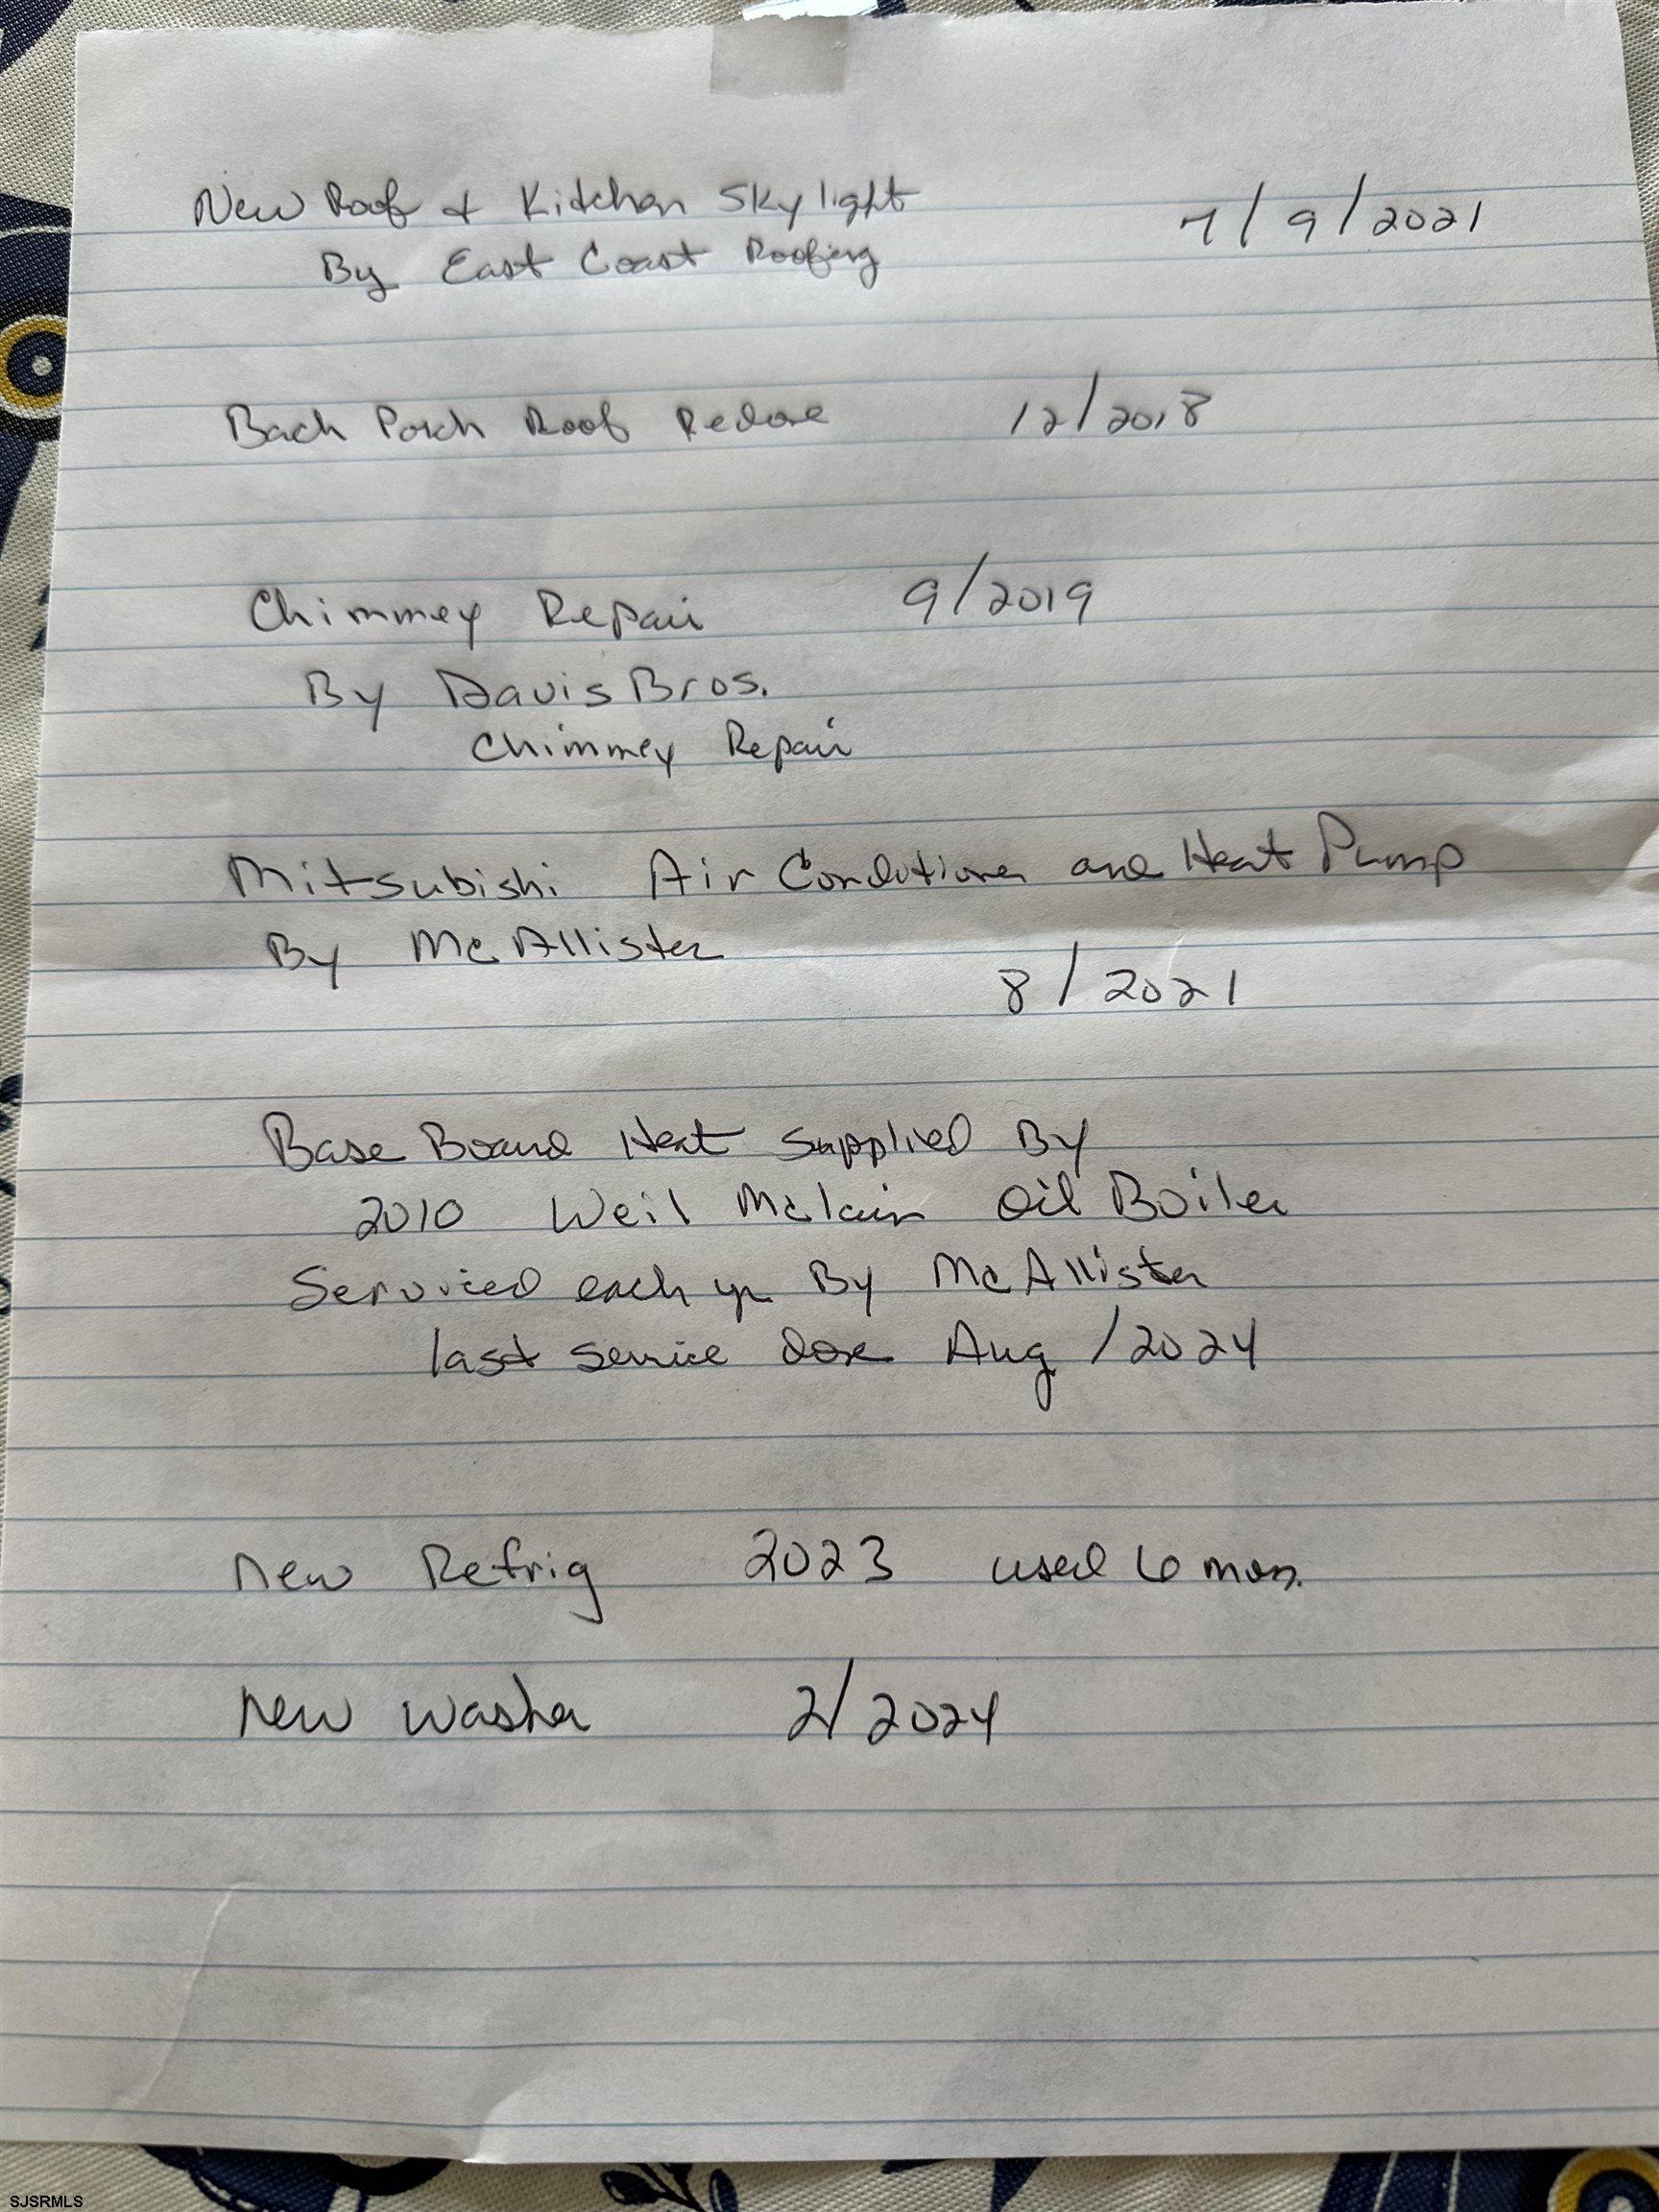 New Roof + Kitchen Skylight 7/9/2021
By East Coast Roofing
Back Porch Roof Redone 12/2018
Chimmey Repair 9/2019
By Davis Bros.
Chimmey Repair
Mitsubishi Air Conditioner and Heat Pump
By McAllister
8/2021
Base Board Heat Supplied By
2010 Weil Mclain Oil Boiler
Serviced each yr By McAllister
last service done Aug/2024
new Refrig 2023 used 6 mos.
new washer 2/2024
SJSRMLS